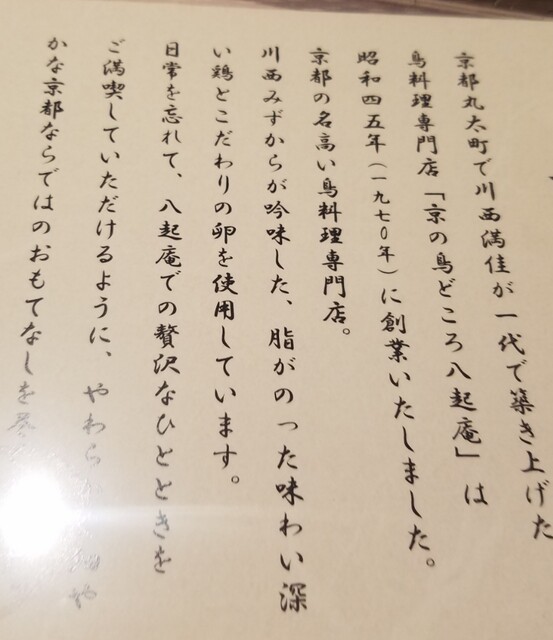 京都丸太町で川西満佳が一代で築き上げた
鳥料理専門店「京の鳥どころ八起庵」は
昭和四五年（一九七〇年）に創業いたしました。
京都の名高い鳥料理専門店。
川西みずからが吟味した、脂がのった味わい深
い鶏とこだわりの卵を使用しています。
日常を忘れて、八起庵での贅沢なひとときを
ご満喫していただけるように、やわら
かな京都ならではのおもてなしを